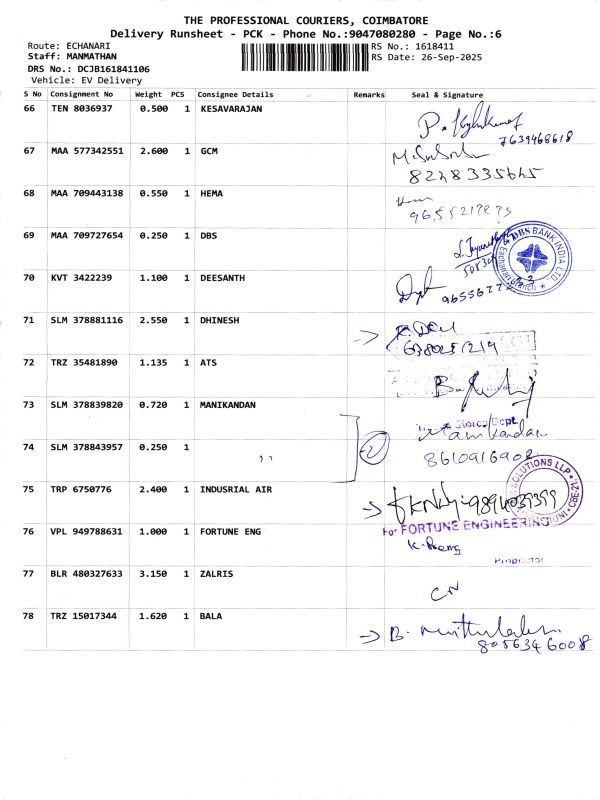 THE PROFESSIONAL COURIERS, COIMBATORE
Delivery Runsheet - PCK - Phone No.:9047080280 - Page No.:6
Route: ECHANARI
Staff: MANMATHAN
DRS No.: DCJB161841106
Vehicle: EV Delivery
RS No.: 1618411
RS Date: 26-Sep-2025
S No Consignment No Weight PCS Consignee Details Remarks Seal & Signature
66 TEN 8036937 0.500 1 KESAVARAJAN
7639468618
67 MAA 577342551 2.600 1 GCM
8248335645
68 MAA 709443138 0.550 1 HEMA
69 MAA 709727654 0.250 1 DBS
DBS BANK INDIA LTD
70 KVT 3422239 1.100 1 DEESANTH
71 SLM 378881116 2.550 1 DHINESH
72 TRZ 35481890 1.135 1 ATS
73 SLM 378839820 0.720 1 MANIKANDAN
Stores/Dept
74 SLM 378843957 0.250 1 ,,
2
8610916902
75 TRP 6750776 2.400 1 INDUSRIAL AIR
SOLUTIONS LLP
9894039399
76 VPL 949788631 1.000 1 FORTUNE ENG
For FORTUNE ENGINEERING
Proprietor
77 BLR 480327633 3.150 1 ZALRIS
78 TRZ 15017344 1.620 1 BALA
8056346008